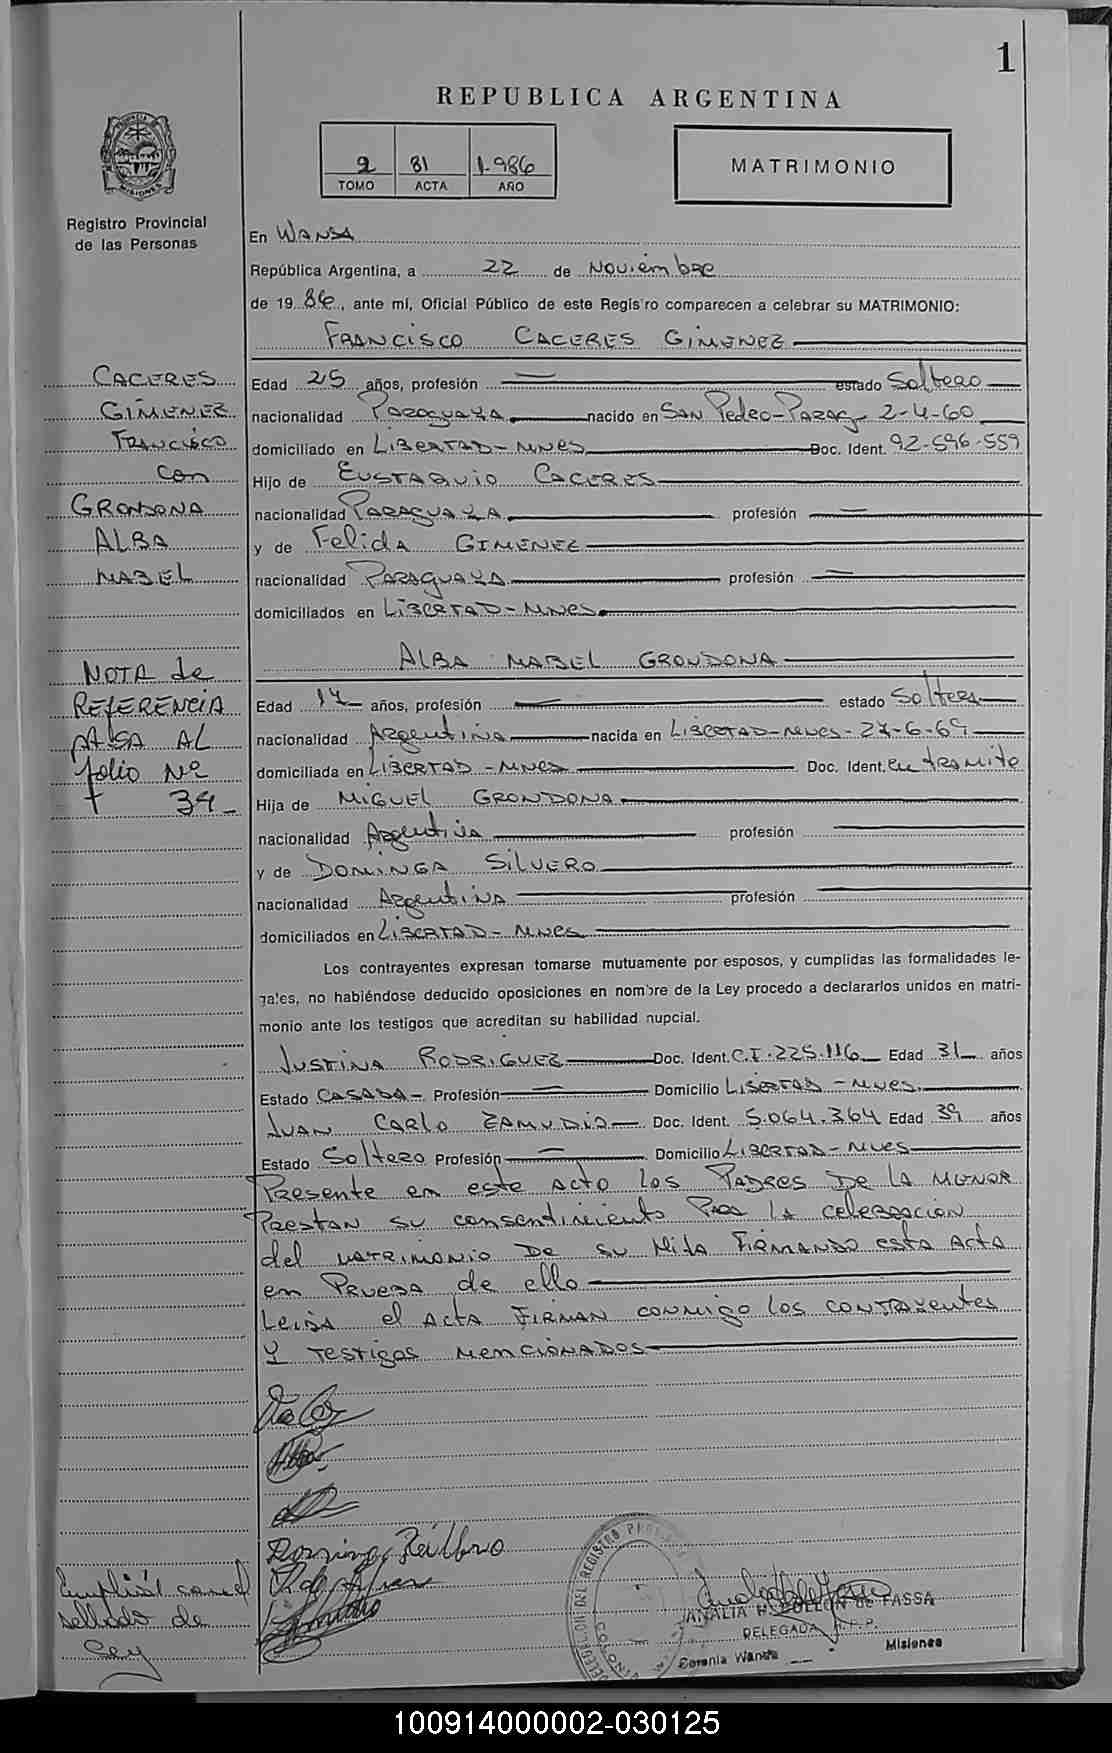 1
REPUBLICA ARGENTINA
2 81 1.986
TOMO ACTA AÑO
MATRIMONIO
Registro Provincial
de las Personas
En WANDA
República Argentina, a 22 de Noviembre
de 19 86, ante mí, Oficial Público de este Registro comparecen a celebrar su MATRIMONIO:
FRANCISCO CACERES GIMENEZ
CACERES
GIMENEZ
FRANCISCO
con
GRONDONA
ALBA
MABEL
Edad 25 años, profesión — estado Soltero
nacionalidad PARAGUAYA nacido en SAN Pedro-PARAG- 2-4-60
domiciliado en LIBERTAD-MNES Doc. Ident. 92-596-559
Hijo de EUSTAQUIO CACERES
nacionalidad PARAGUAYA profesión —
y de Felida GIMENEZ
nacionalidad PARAGUAYA profesión —
domiciliados en LIBERTAD-MNES
ALBA MABEL GRONDONA
NOTA de
REFERENCIA
PASA AL
folio Nº
39
Edad 17 años, profesión — estado Soltera
nacionalidad Argentina nacida en LIBERTAD-MNES-27-6-69
domiciliada en LIBERTAD-MNES Doc. Ident. en tramite
Hija de MIGUEL GRONDONA
nacionalidad Argentina profesión
y de DOMINGA SILVERO
nacionalidad Argentina profesión
domiciliados en LIBERTAD-MNES
Los contrayentes expresan tomarse mutuamente por esposos, y cumplidas las formalidades le-
gales, no habiéndose deducido oposiciones en nombre de la Ley procedo a declararlos unidos en matri-
monio ante los testigos que acreditan su habilidad nupcial.
JUSTINA RODRIGUEZ Doc. Ident. C.I.225.116 Edad 31 años
Estado CASADA Profesión — Domicilio LIBERTAD-MNES
JUAN CARLO ZAMUDIO Doc. Ident. 5.064.364 Edad 39 años
Estado Soltero Profesión — Domicilio LIBERTAD-MNES
Presente en este acto los PADRES DE LA MENOR
PRESTAN su consentimiento PARA LA celebracion
del MATRIMONIO DE su HIJA FIRMANDO esta ACTA
en PRUEBA de ello
LEIDA el ACTA FIRMAN conmigo los contrayentes
Y Testigos MENCIONADOS
sellado de
Ley
ANALIA H. DE FASSA
DELEGADA R.P.P.
Colonia Wanda Misiones
100914000002-030125